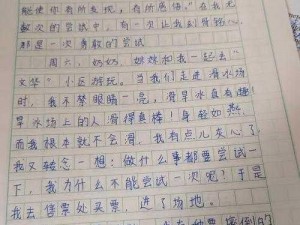 能使你有所发现，有所感悟。"在我无
数次的尝试中，有一次让我刻骨铭心，
那是一次勇敢的尝试
周六，奶奶、姐姐和我一起去"
文华"小区游玩。当我们走进滑冰场
时，我不禁眼睛一亮，滑旱冰真有趣！
旱冰场上的人滑得真棒！身轻如燕，
而我根本就不会滑，我有点儿灰心了
我又转念一想：做什么事都要尝试一
下，我为什么不能尝试一次呢？于是
我去售票处买票，进了场地。